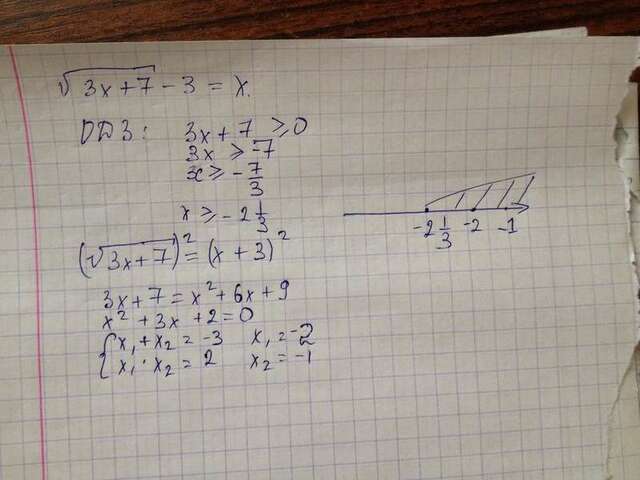 √3x+7 - 3 = x.
ОДЗ: 3x+7 ≥0
3x ≥ -7
x ≥ -7/3
x ≥ -2 1/3
-2 1/3 -2 -1
(√3x+7)² = (x+3)²
3x+7 = x²+6x+9
x²+3x+2=0
{x₁+x₂ = -3 x₁=-2
x₁·x₂ = 2 x₂=-1